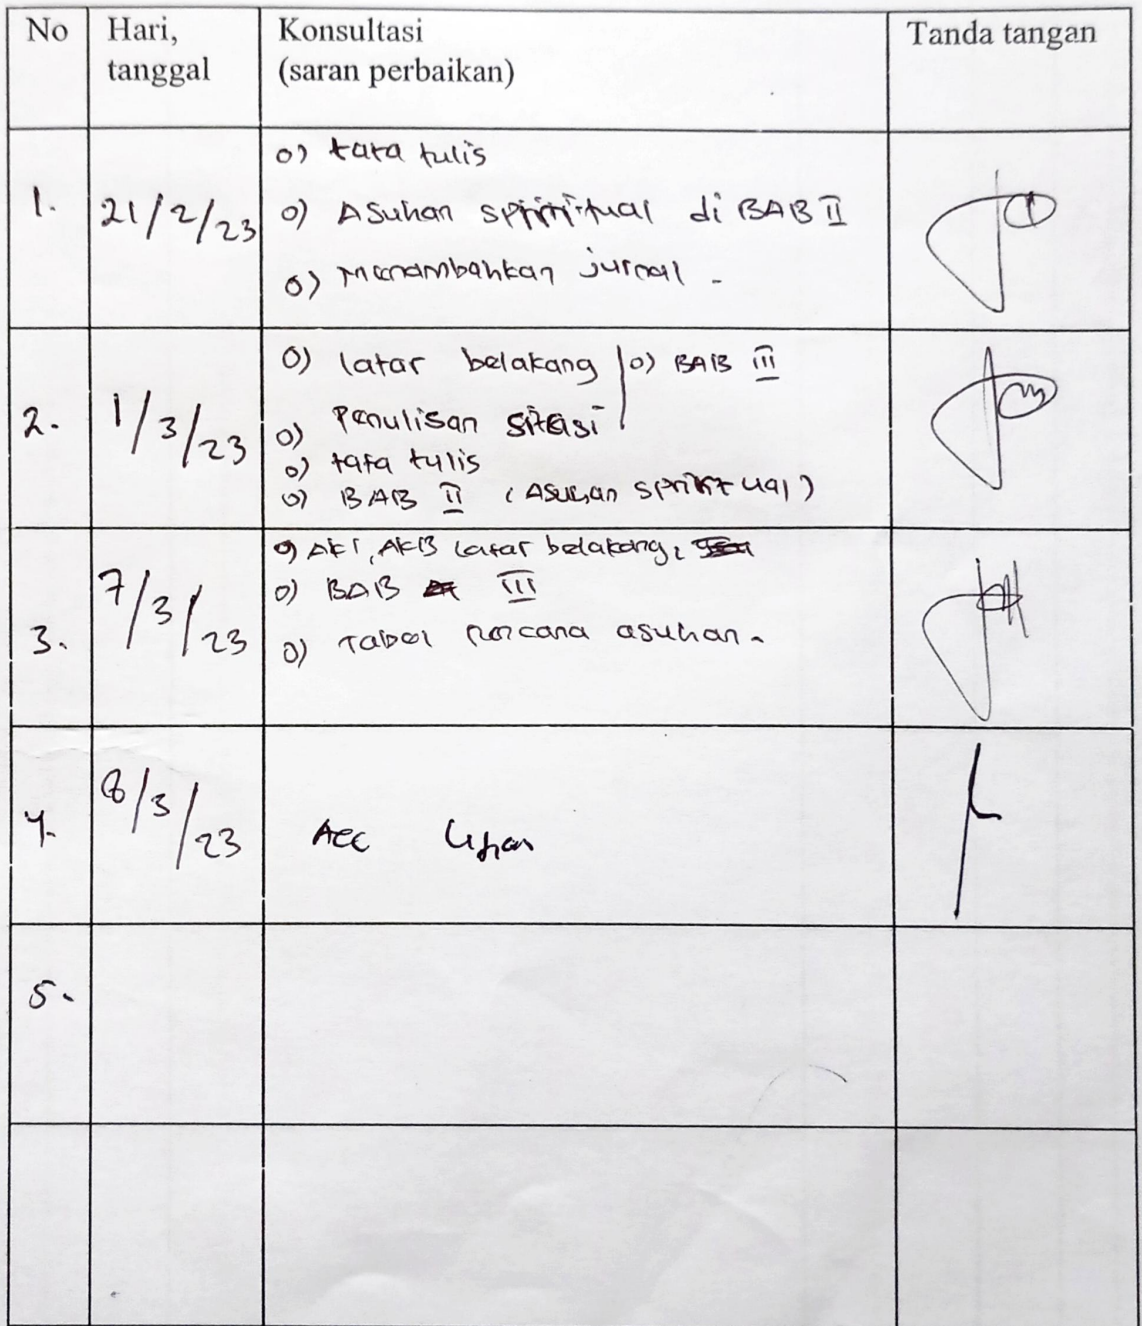 No Hari, tanggal Konsultasi (saran perbaikan) Tanda tangan
1. 21/2/23
o) tata tulis
o) Asuhan spiritual di BAB II
o) Menambahkan jurnal -
2. 1/3/23
o) latar belakang o) BAB III
o) Penulisan sitasi
o) tata tulis
o) BAB II (Asuhan spiritual)
3. 7/3/23
o) AKI, AKB latar belakang,
o) BAB III
o) Tabel rencana asuhan.
4. 8/3/23
Acc Ujian
5.